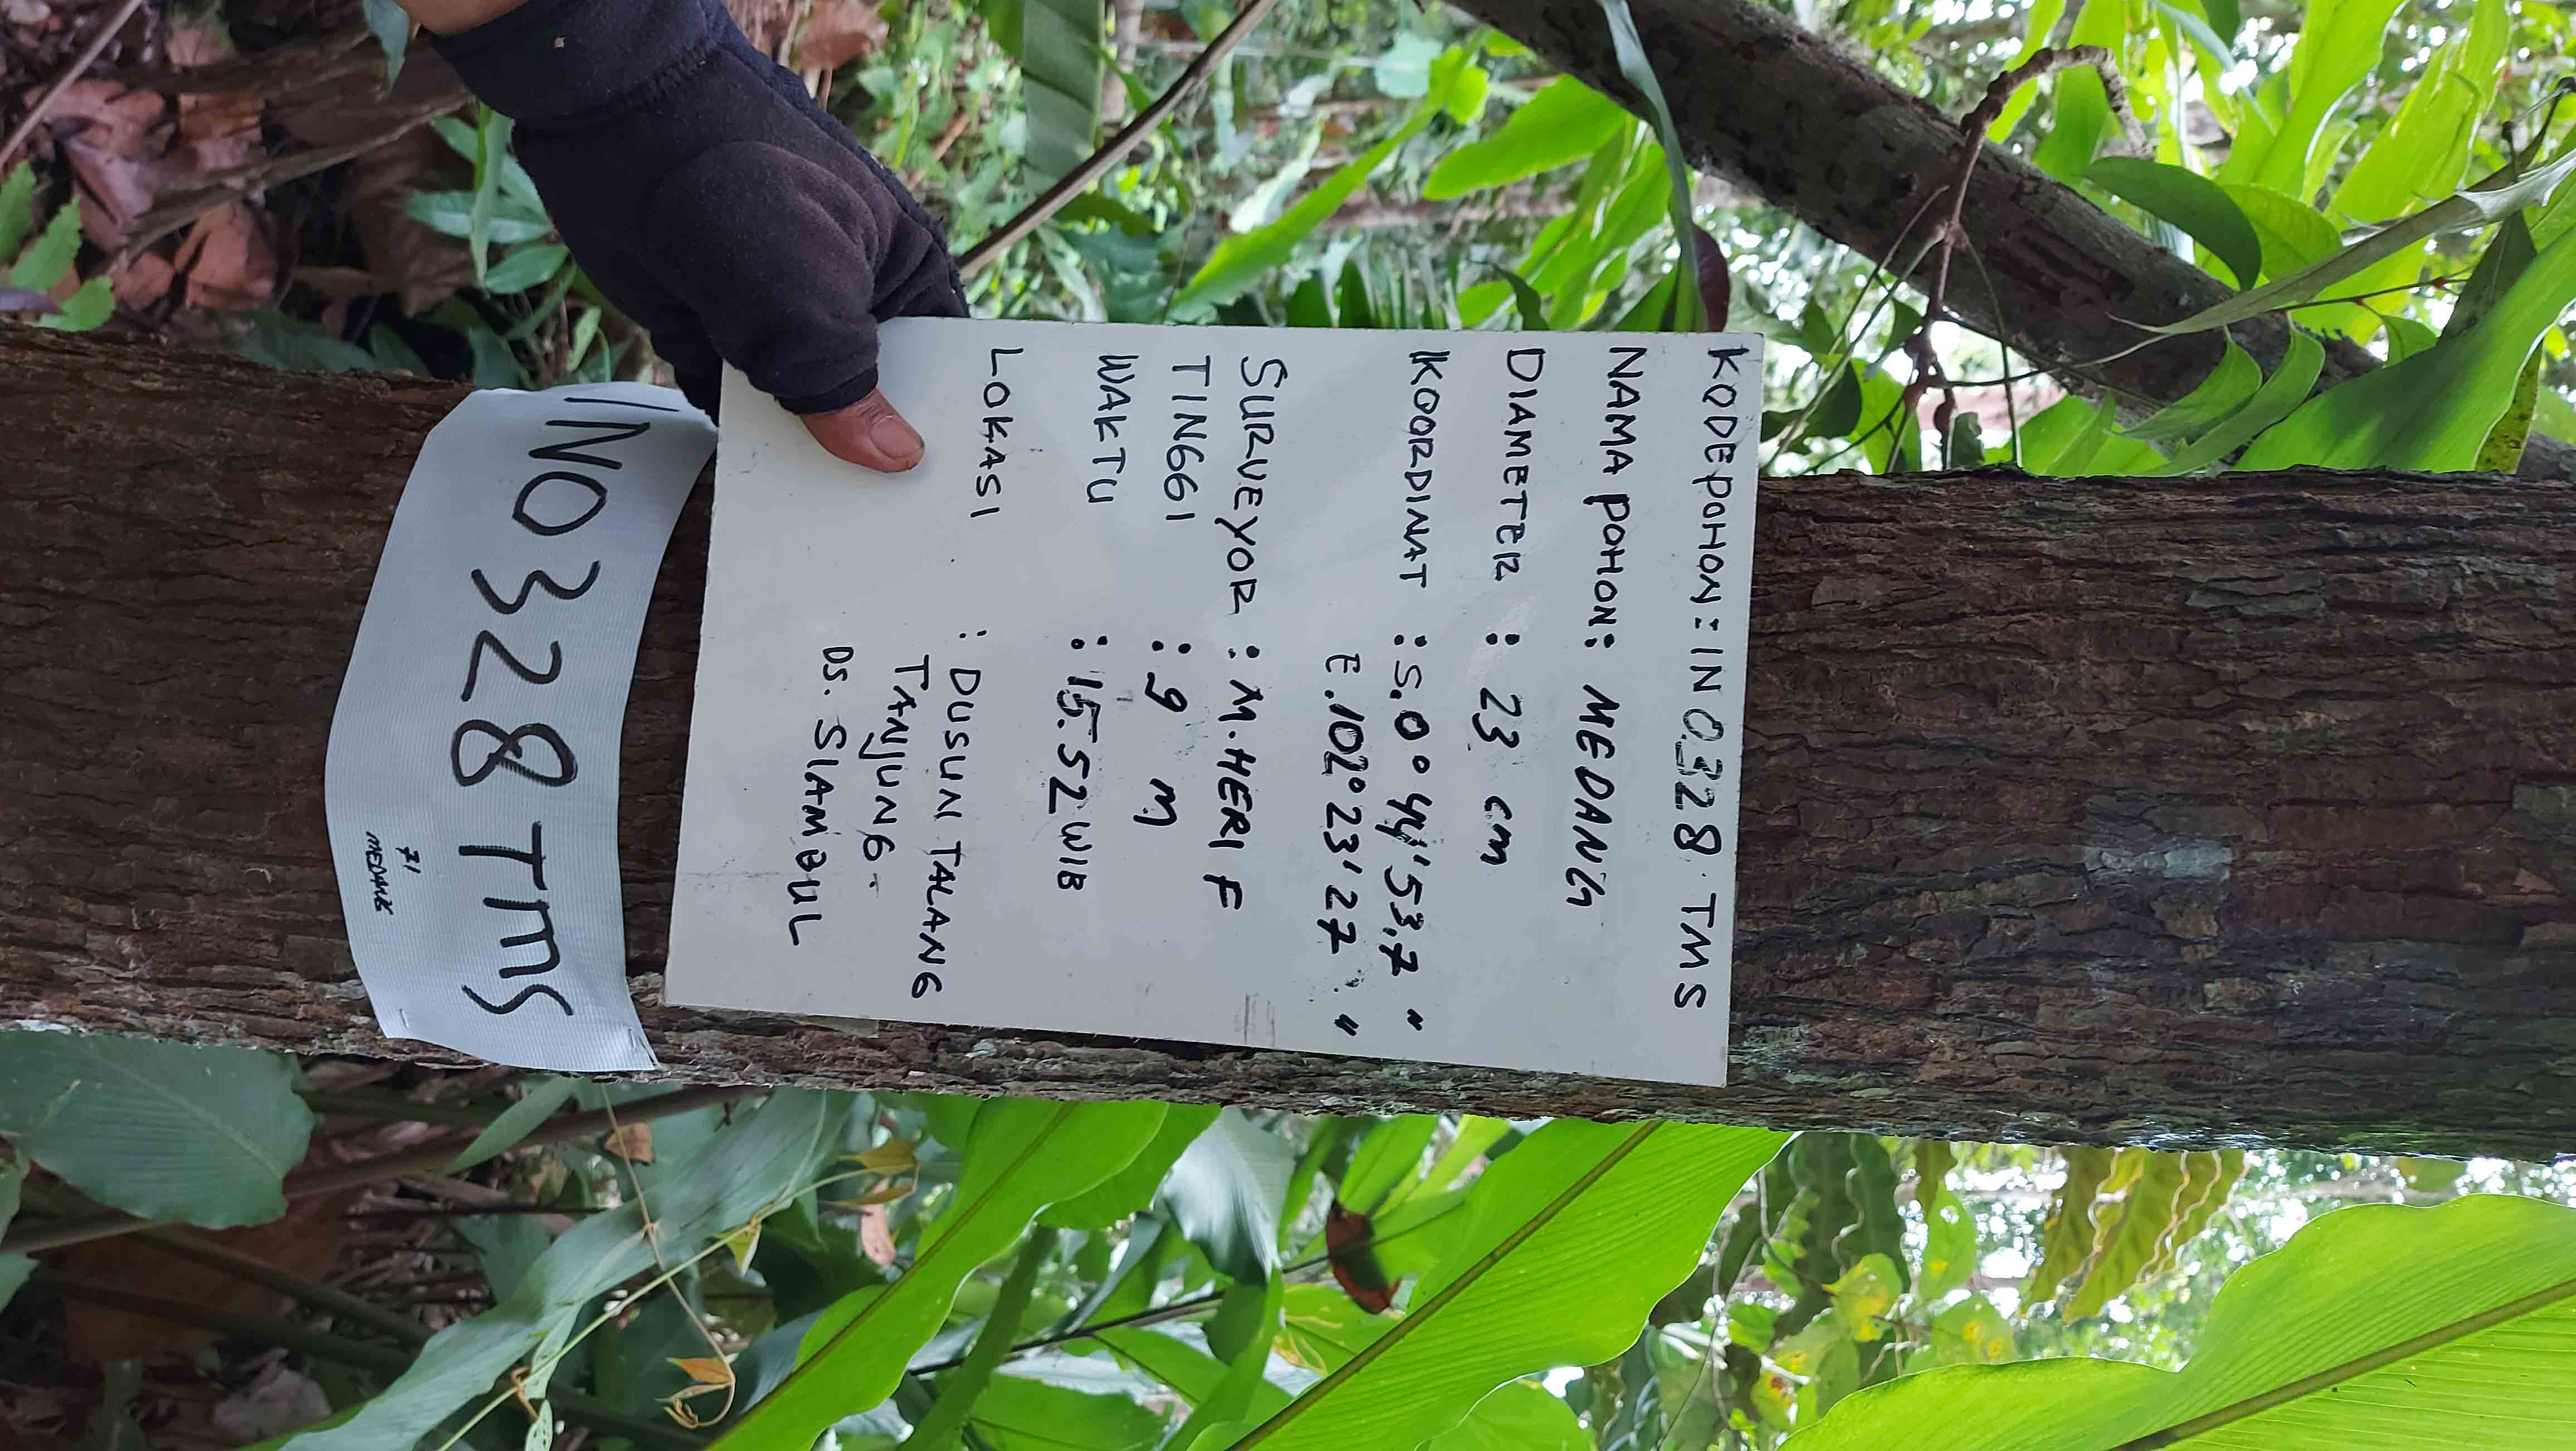 KODE POHON : IN 0328 TMS
NAMA POHON : MEDANG
DIAMETER : 23 cm
KOORDINAT : S.0° 44' 53,7 "
E.102° 23' 27 "
SURVEYOR : M.HERI F
TINGGI : 9 M
WAKTU : 15.52 WIB
LOKASI : DUSUN TALANG
TANJUNG.
DS. SIAMBUL
IN0328 TMS
71
MEDANG